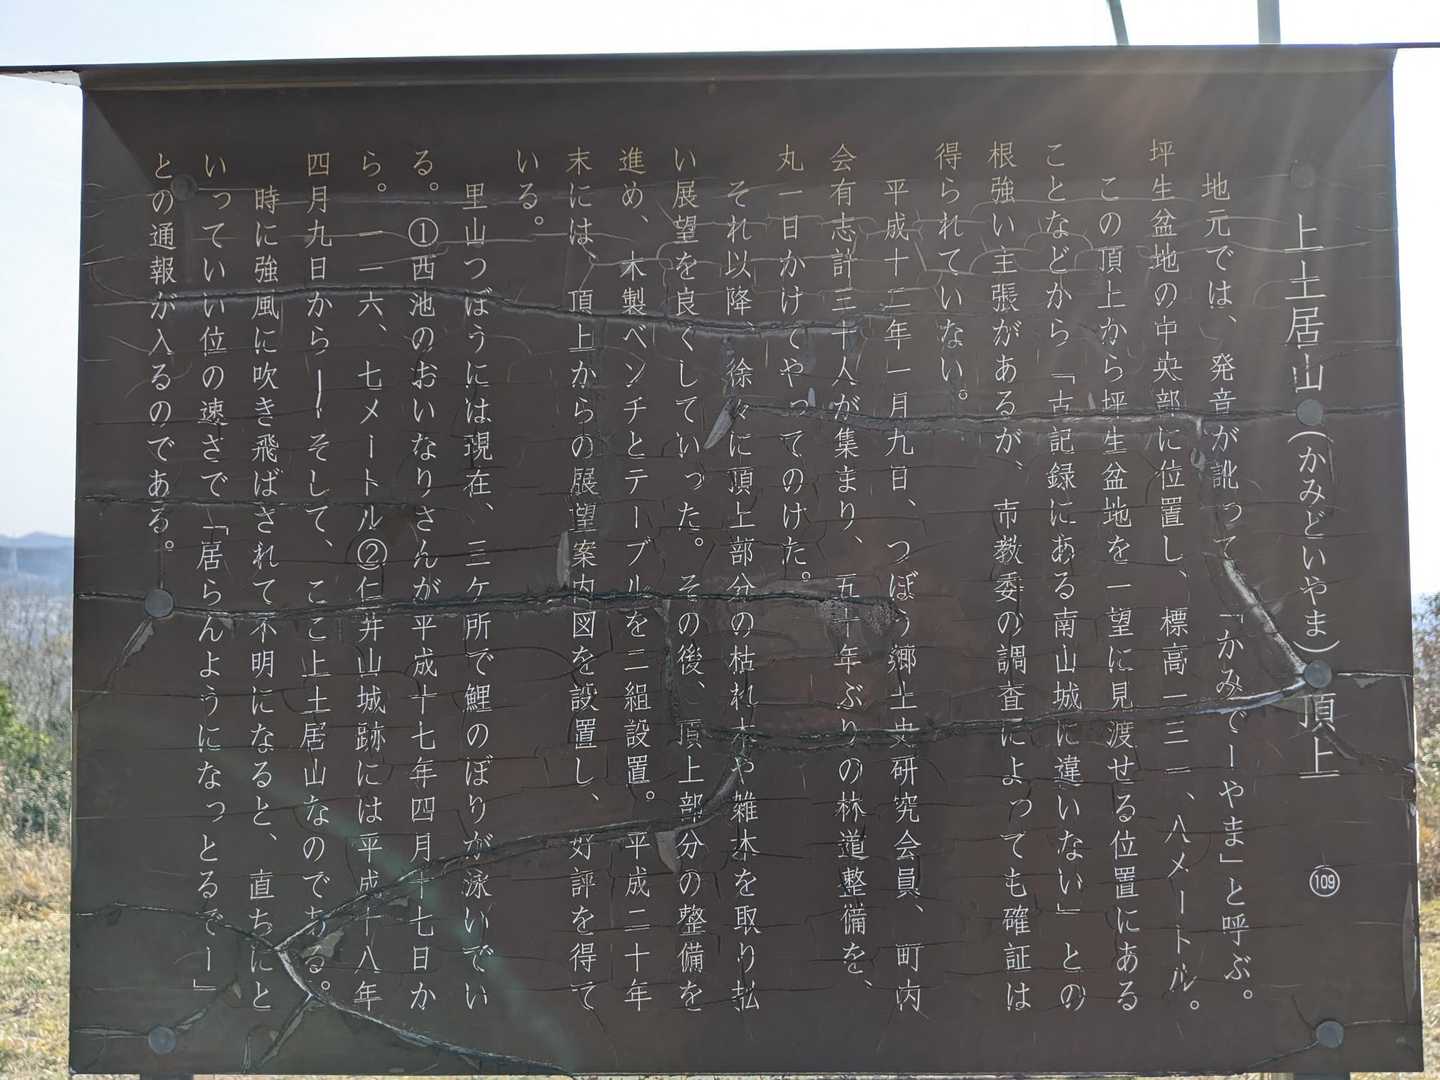 上土居山(かみどいやま)頂上 109
地元では、発音が訛って、「かみでーやま」と呼ぶ。
坪生盆地の中央部に位置し、標高一三一、八メートル。
この頂上から坪生盆地を一望に見渡せる位置にある
ことなどから「古記録にある南山城に違いない」との
根強い主張があるが、市教委の調査によっても確証は
得られていない。
平成十二年一月九日、つぼう郷土史研究会員、町内
会有志計三十人が集まり、五十年ぶりの林道整備を、
丸一日かけてやってのけた。
それ以降、徐々に頂上部分の枯れ木や雑木を取り払
い展望を良くしていった。その後、頂上部分の整備を
進め、木製ベンチとテーブルを二組設置。平成二十年
末には、頂上からの展望案内図を設置し、好評を得て
いる。
里山つぼうには現在、三ケ所で鯉のぼりが泳いでい
る。①西池のおいなりさんが平成十七年四月十七日か
ら。一一六、七メートル②仁井山城跡には平成十八年
四月九日からーーそして、ここ上土居山なのである。
時に強風に吹き飛ばされて不明になると、直ちにと
いっていい位の速さで「居らんようになっとるでー」
との通報が入るのである。